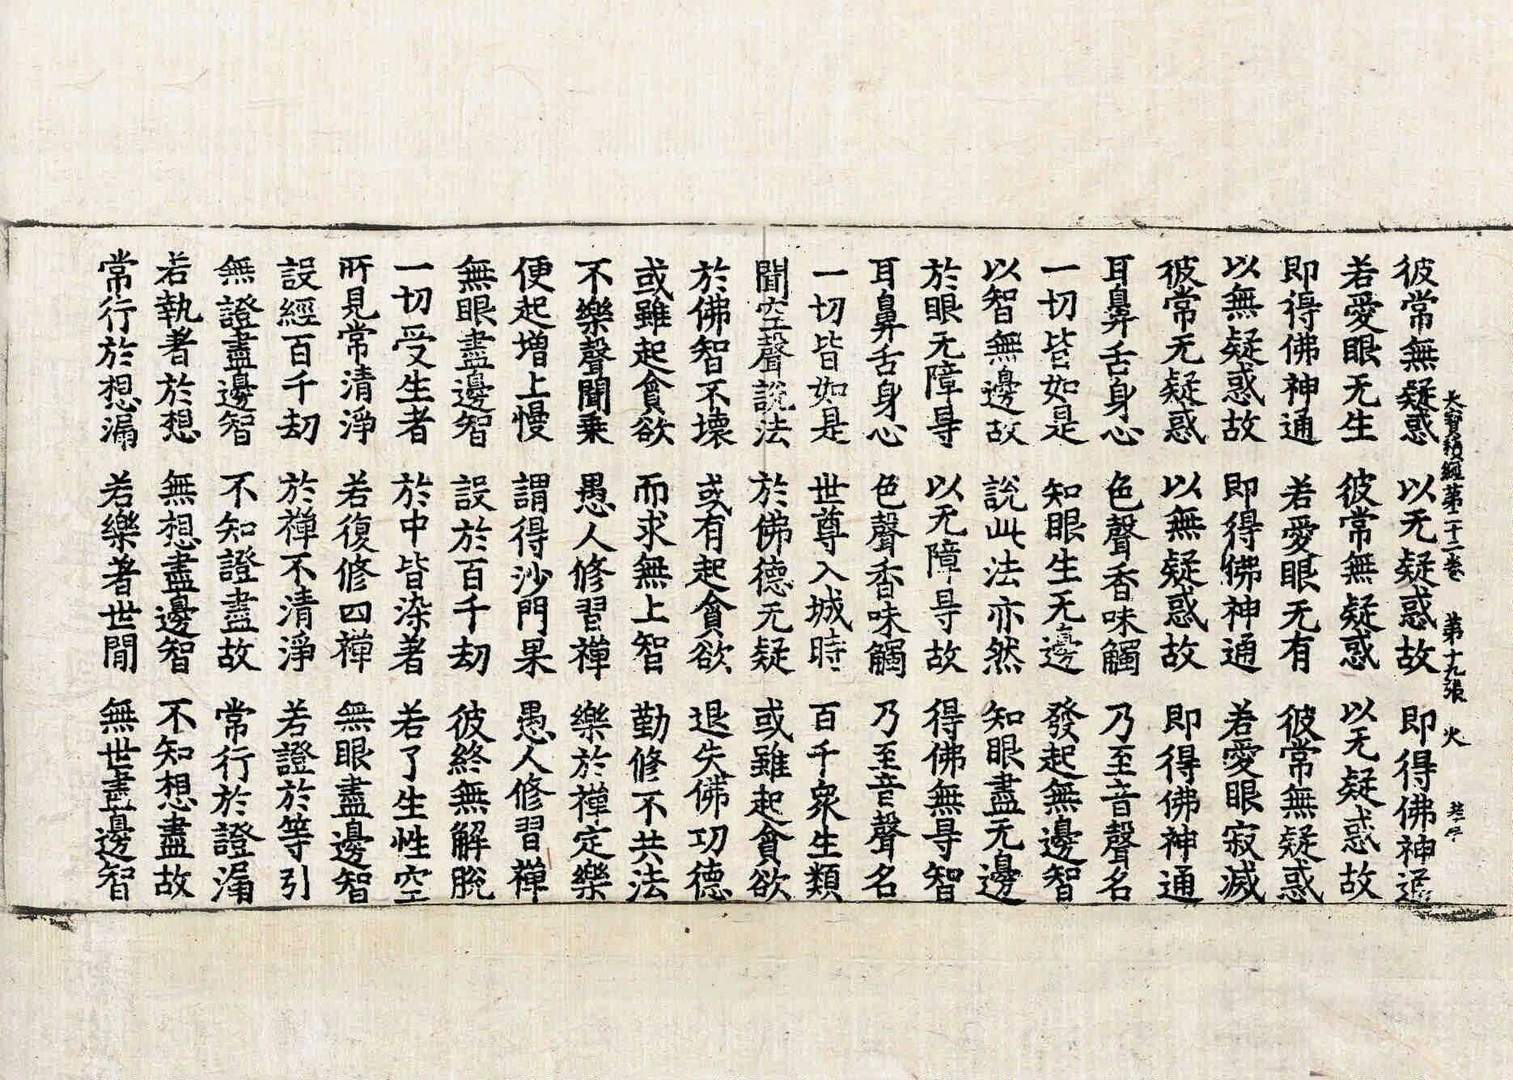 大寶積經第二十二卷　第十九張　火
彼常無疑惑　以无疑惑故　即得佛神通
若愛眼无生　彼常無疑惑　以无疑惑故
即得佛神通　若愛眼无有　彼常無疑惑
以無疑惑故　即得佛神通　若愛眼寂滅
彼常无疑惑　以無疑惑故　即得佛神通
耳鼻舌身心　色聲香味觸　乃至音聲名
一切皆如是　知眼生无邊　發起無邊智
以智無邊故　說此法亦然　知眼盡无邊
於眼无障㝵　以无障㝵故　得佛無㝵智
耳鼻舌身心　色聲香味觸　乃至音聲名
一切皆如是　世尊入城時　百千眾生類
聞空聲說法　於佛德无疑　或雖起貪欲
於佛智不壞　或有起貪欲　退失佛功德
或雖起貪欲　而求無上智　勤修不共法
不樂聲聞乗　愚人修習禪　樂於禪定樂
便起增上慢　謂得沙門果　愚人修習禪
無眼盡邊智　設於百千劫　彼終無解脫
一切受生者　於中皆染著　若了生性空
所見常清淨　若復修四禪　無眼盡邊智
設經百千劫　於禪不清淨　若證於等引
無證盡邊智　不知證盡故　常行於證漏
若執著於想　無想盡邊智　不知想盡故
常行於想漏　若樂著世間　無世盡邊智